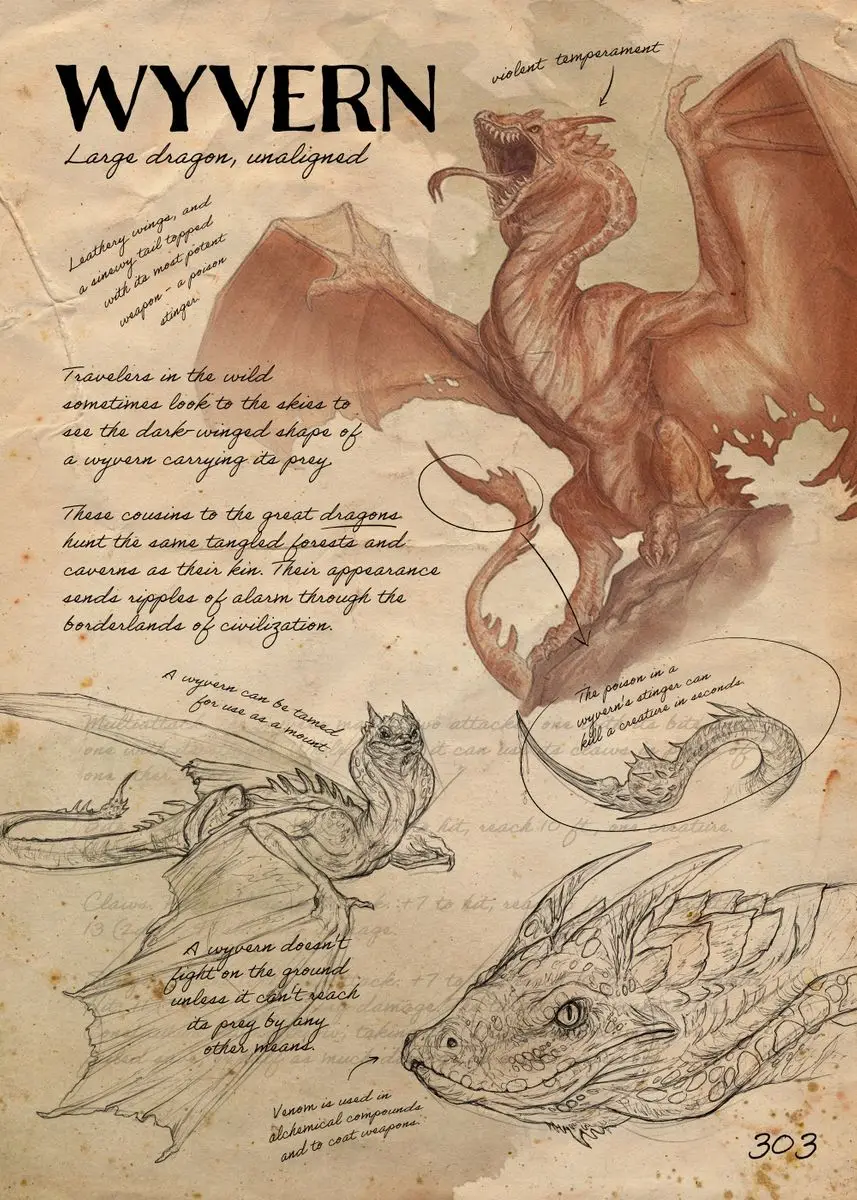 WYVERN
Large dragon, unaligned
violent temperament
Leathery wings, and
a sinewy tail topped
with its most potent
weapon - a poison
stinger.
Travelers in the wild
sometimes look to the skies to
see the dark-winged shape of
a wyvern carrying its prey.
These cousins to the great dragons
hunt the same tangled forests and
caverns as their kin. Their appearance
sends ripples of alarm through the
borderlands of civilization.
A wyvern can be tamed
for use as a mount
The poison in a
wyvern's stinger can
kill a creature in seconds.
Multiattack. two attacks: one its bite
one with its it can use its claws of
one other
hit, reach 10 ft., one creature.
Claws. +7 to hit,
13
+7 to
damage
A wyvern doesn't
fight on the ground
unless it can't reach
its prey by any
other means.
as much
Venom is used in
alchemical compounds
and to coat weapons.
303